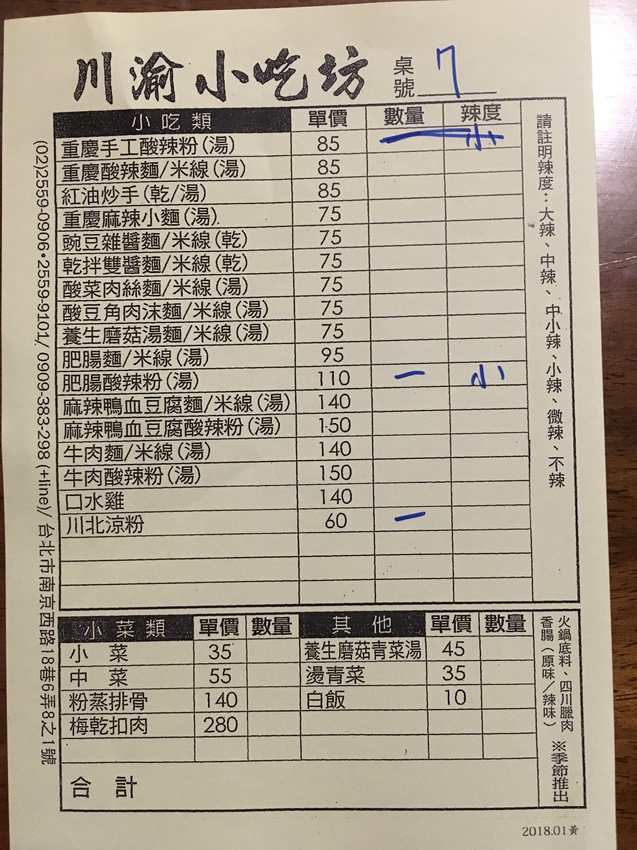 川渝小吃坊 桌號 7
小吃類 單價 數量 辣度
重慶手工酸辣粉(湯) 85 一 小
重慶酸辣麵/米線(湯) 85
紅油炒手(乾/湯) 85
重慶麻辣小麵(湯) 75
豌豆雜醬麵/米線(乾) 75
乾拌雙醬麵/米線(乾) 75
酸菜肉絲麵/米線(湯) 75
酸豆角肉沫麵/米線(湯) 75
養生磨菇湯麵/米線(湯) 75
肥腸麵/米線(湯) 95
肥腸酸辣粉(湯) 110 一 小
麻辣鴨血豆腐麵/米線(湯) 140
麻辣鴨血豆腐酸辣粉(湯) 150
牛肉麵/米線(湯) 140
牛肉酸辣粉(湯) 150
口水雞 140
川北涼粉 60 一
請註明辣度：大辣、中辣、中小辣、小辣、微辣、不辣
小菜類 單價 數量 其他 單價 數量
小菜 35 養生磨菇青菜湯 45
中菜 55 燙青菜 35
粉蒸排骨 140 白飯 10
梅乾扣肉 280
合計
火鍋底料、四川臘肉
香腸(原味/辣味)
※季節推出
(02)2559-0906•2559-9101/ 0909-383-298 (+line)/ 台北市南京西路18巷6弄8之1號
2018.01黃